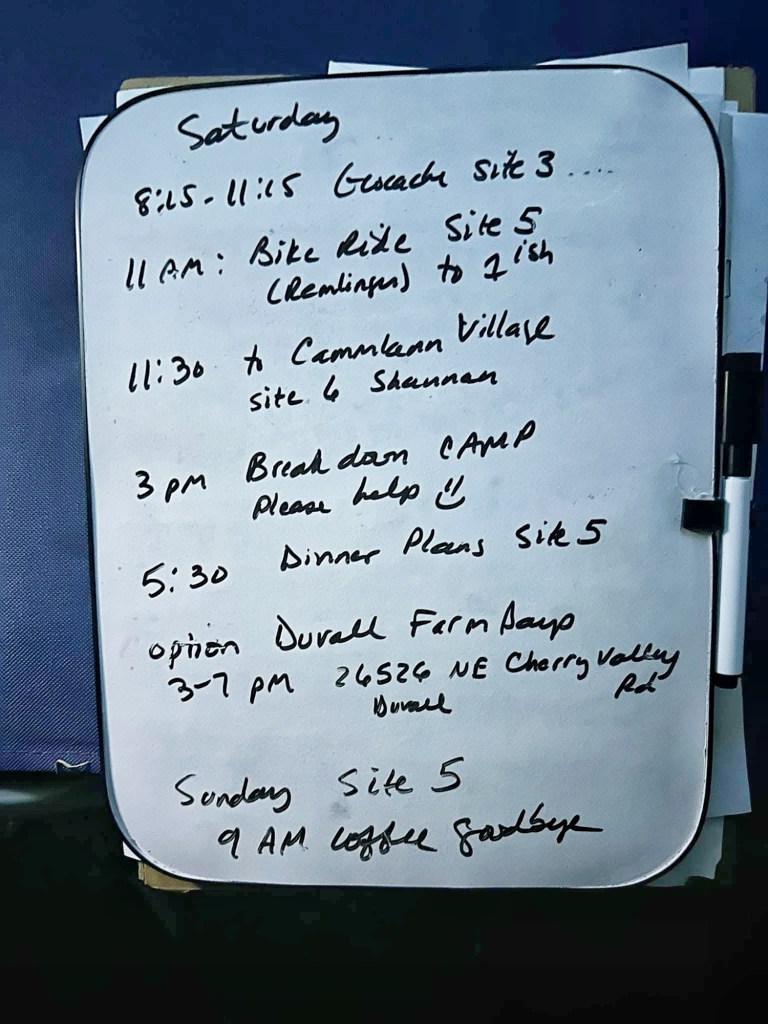 Saturday
8:15 - 11:15 Geocache Site 3 ....
11 AM: Bike Ride Site 5
(Remlinger) to 1 ish
11:30 to Cammlann Village
site 6 Shannan
3 pm Break down CAMP
Please help
5:30 Dinner Plans Site 5
option Duvall Farm Days
3-7 pm 26526 NE Cherry Valley
Rd
Duvall
Sunday Site 5
9 AM coffee goodbye